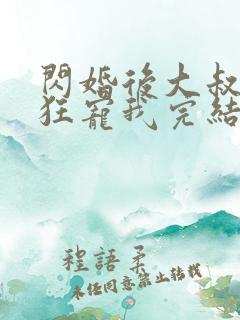 閃婚後大叔
狂寵我完結
程語柔
未任同意禁止轉載